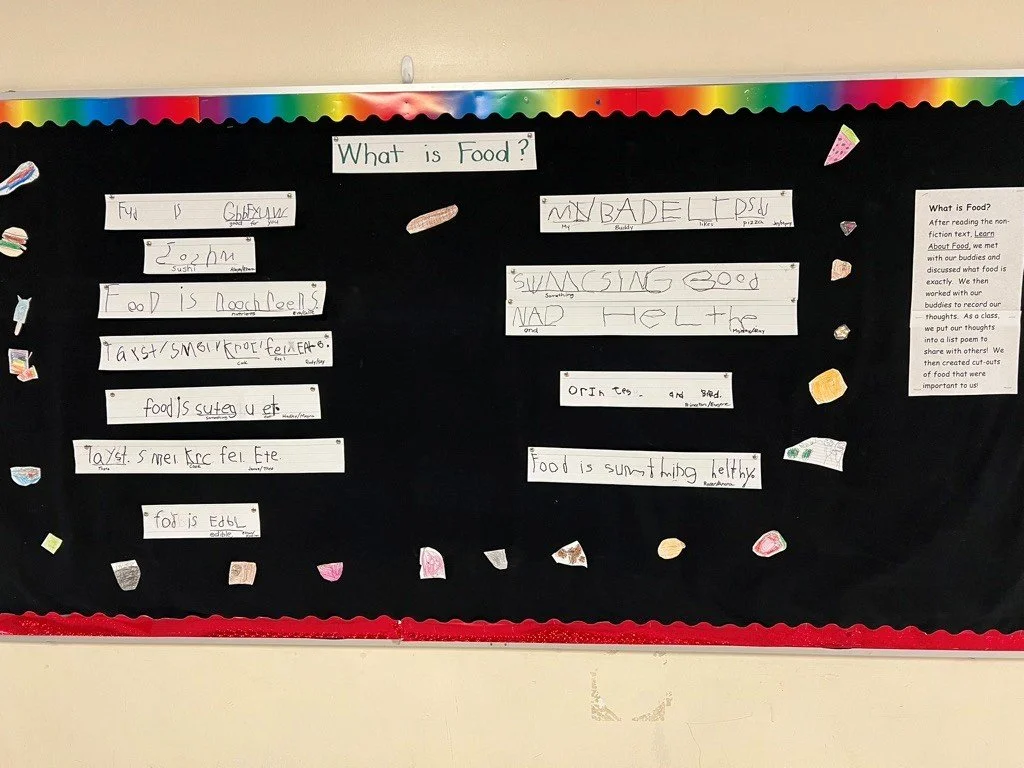 What is Food?
Fud is
good for you
Sushi
Food is
nutrients
Tayst/smel/
Cook Feel
food is suteg u et.
Something
Tayst. smel Krc fel. Ete.
Taste Cook
fod is EdbL
edible
MY BADE
My Buddy likes pizza
SUMCSING Good
Something
NAD HeLthe
and
and
Food is sumthing helthy.
What is Food?
After reading the non-
fiction text, Learn
About Food, we met
with our buddies and
discussed what food is
exactly. We then
worked with our
buddies to record our
thoughts. As a class,
we put our thoughts
into a list poem to
share with others! We
then created cut-outs
of food that were
important to us!